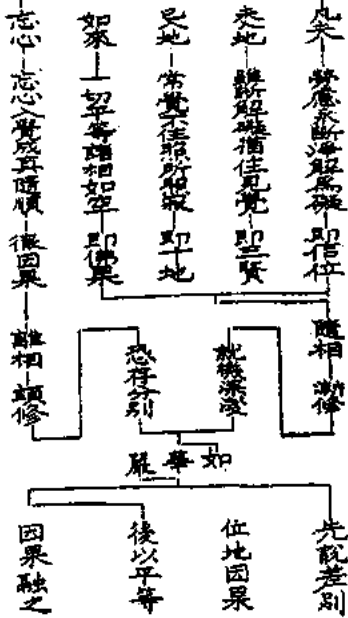 凡夫 勞慮永斷淨解為礙 即信位
未地 雖斷解礙猶住見覺 即三賢
地 常覺不住照所照寂 即十地
如來 一切平等諸相如空 即佛果
忘心 忘心入覺成真隨順 因果
隨相 漸修
就機深淺
恐存分別
離相 頓修
如華嚴
先說差別
位地因果
後以平等
因果融之